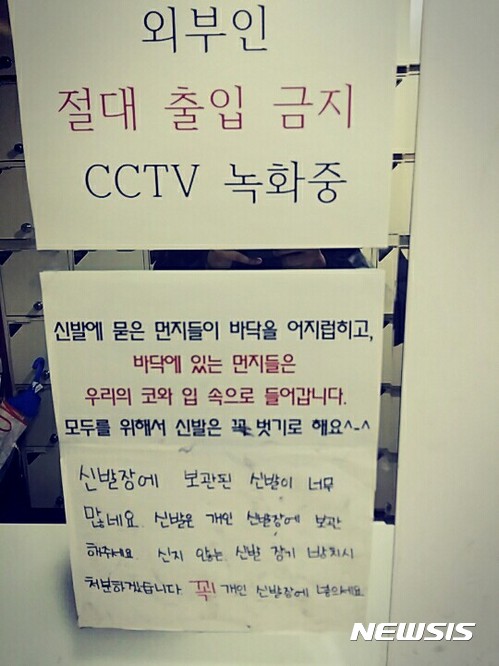 외부인
절대 출입 금지
CCTV 녹화중
신발에 묻은 먼지들이 바닥을 어지럽히고,
바닥에 있는 먼지들은
우리의 코와 입 속으로 들어갑니다.
모두를 위해서 신발은 꼭 벗기로 해요^-^
신발장에 보관된 신발이 너무
많네요. 신발은 개인 신발장에 보관
해주세요. 신지 않는 신발 장기 방치시
처분하겠습니다. 꼭! 개인 신발장에 넣으세요.
NEWSIS